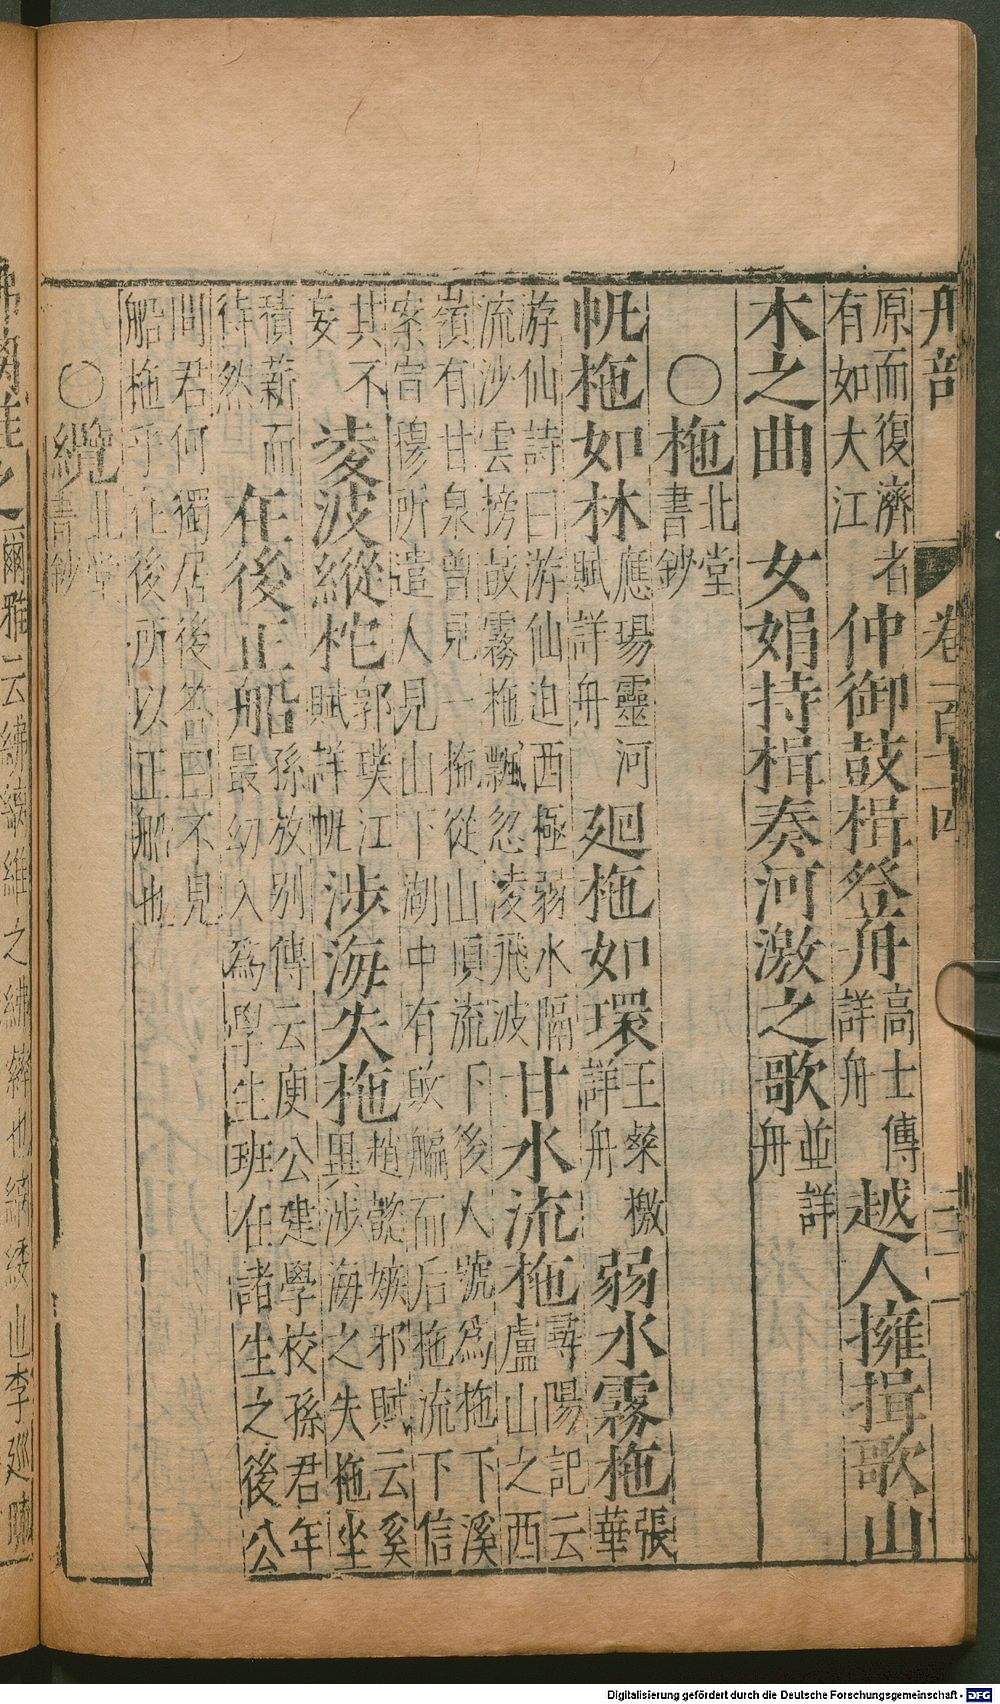 舟部 卷一百十四
原而復濟者有如大江 仲御鼓楫登舟 高士傳詳舟 越人擁楫歌山
木之曲 女娟持楫奏河激之歌 並詳舟
〇柂 北堂書鈔
帆柂如林 應瑒靈河賦詳舟 廻柂如環 王粲檄詳舟 弱水霧柂 張華
游仙詩曰游仙迫西極弱水隔流沙雲榜鼓霧柂飄忽凌飛波 甘水流柂 尋陽記云盧山之西
嶺有甘泉曾見一柂從山頂流下後人號為柂下溪案宮穆所遣人見山下湖中有敗艑而后柂流下信
其不妄 凌波縱柁 郭璞江賦詳帆 涉海失柂 趙歆嫉邪賦云奚異涉海之失柂坐
積薪而待然 在後正船 孫放別傳云庾公建學校孫君年最幼入為學生班在諸生之後公
問君何獨居後答曰不見船柂乎在後所以正船也
〇纜 北堂書鈔
爾雅云紼縭維之紼繂也縭緌也李廵曰
Digitalisierung gefördert durch die Deutsche Forschungsgemeinschaft - DFG